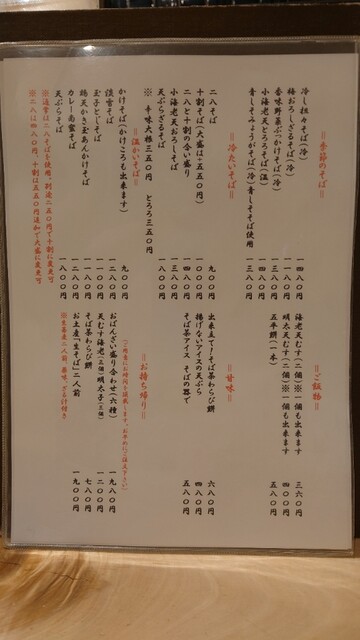 ＝季節のそば＝
冷し担々そば（冷） 一四八〇円
梅おろしざるそば（冷） 一一八〇円
香味野菜ぶっかけそば（冷） 一三八〇円
小海老天とろろそば（温） 一四八〇円
青しそみょうがそば（冷）青しそそば使用 一三八〇円
＝冷たいそば＝
二八そば 九〇〇円
十割そば（大盛は＋五五〇円） 一一〇〇円
二八と十割の合い盛り 一四八〇円
小海老天おろしそば 一三八〇円
天ぷらざるそば 一八〇〇円
※ 辛味大根三五〇円 とろろ三五〇円
＝温かいそば＝
かけそば（かけころも出来ます） 九〇〇円
淡雪そば
玉子とじそば 一一〇〇円
鶏天かき玉あんかけそば
カレー南蛮そば
天ぷらそば 一八〇〇円
※通常は二八そばを使用。別途二五〇円で十割に変更可
※二八は四八〇円、十割は五五〇円追加で大盛に変更可
＝ご飯物＝
海老天むす（二個）※一個も出来ます 三六〇円
明太天むす（二個）※一個も出来ます 四〇〇円
五平餅（一本） 五八〇円
＝甘味＝
出来立て！そば茶わらび餅 六八〇円
揚げないアイスの天ぷら 四八〇円
そば茶アイス そばの器で 五八〇円
＝お持ち帰り＝
おばんざい盛り合わせ（六種） 一九八〇円
天むす海老（三個）明太子（三個） 一二〇〇円
そば茶わらび餅 七八〇円
お土産「生そば」二人前 一九〇〇円
※生蕎麦二人前、薬味、ざる汁付き